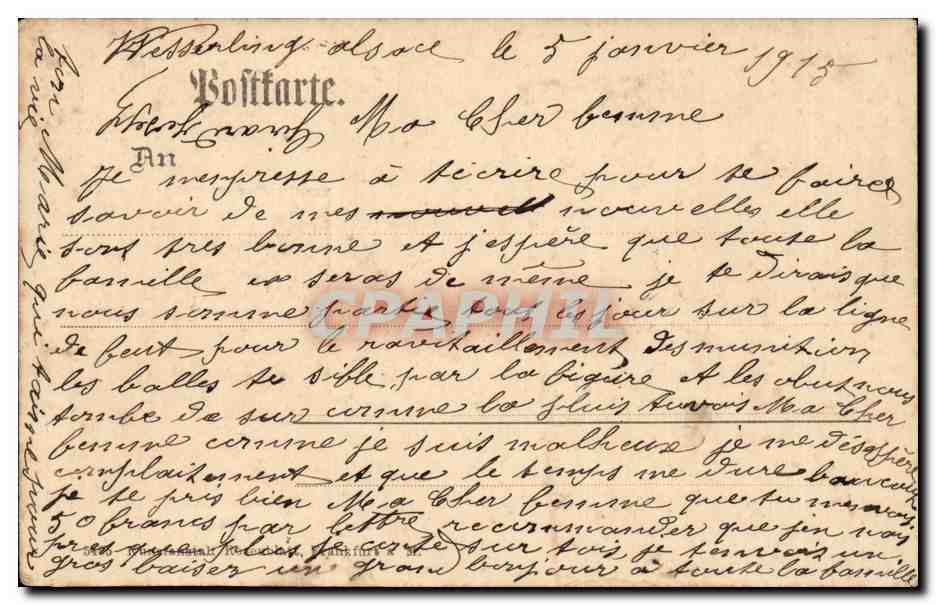 Wesserling alsace le 5 janvier 1915
Postkarte.
Ma Cher femme
An
Je mespresse à técrire pour te faire
savoir de mes nouvelles elle
sont tres bonne et j'espère que toute la
famille en seras de même je te dirais que
nous somme partis tous les jour sur la ligne
de feut pour le ravitaillement des munition
les balles te sifle par la figure et les obut nous
tombe de sur comme la pluis tu vois Ma Cher
femme comme je suis malheux je me désespère
complaitement et que le temps me dure baucoup
je te pris bien Ma Cher femme que tu menvois
50 francs par lettre recommander que jen nais
pas je compte sur tois je tenvois un
gros baiser un grand bonjour a toute la famille
5425 Kunstanstalt Rosenblatt, Frankfurt a. M.
ton Marie qui taime pour
la vie
CPAPHIL